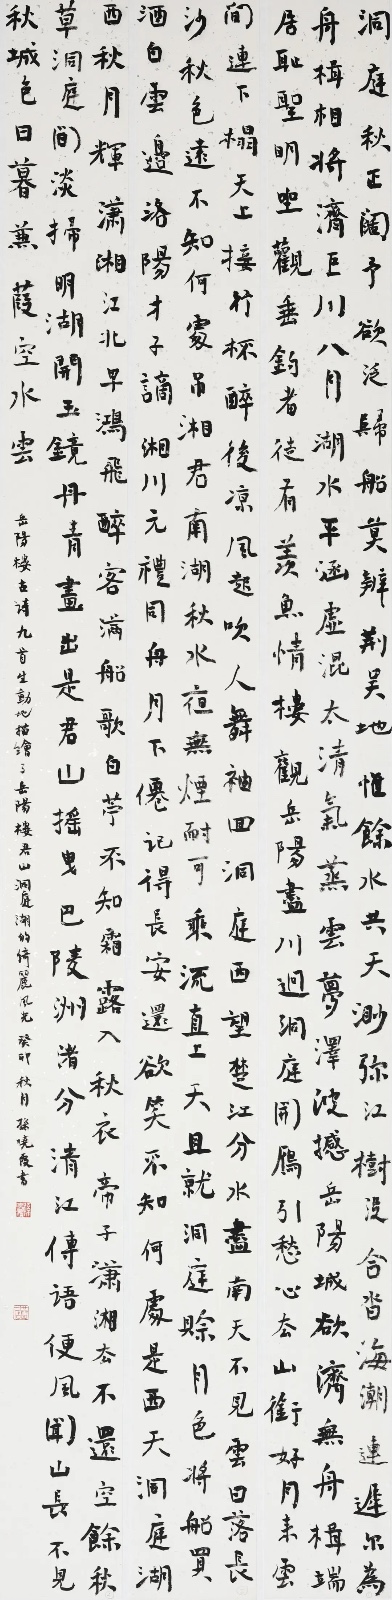 洞庭秋正闊予欲泛歸船莫辨荆吴地惟餘水共天渺弥江樹没合沓海潮連遲尔為
舟楫相将濟巨川八月湖水平涵虚混太清氣蒸雲夢澤波撼岳陽城欲濟無舟楫端
居恥聖明坐觀垂釣者徒有羡魚情樓觀岳陽盡川迥洞庭開鴈引愁心去山銜好月来雲
間連下榻天上接行杯醉後凉風起吹人舞袖回洞庭西望楚江分水盡南天不見雲日落長
沙秋色遠不知何處吊湘君南湖秋水夜無煙耐可乘流直上天且就洞庭賒月色将船買
酒白雲邊洛陽才子謫湘川元禮同舟月下僊記得長安還欲笑不知何處是西天洞庭湖
西秋月輝瀟湘江北早鴻飛醉客滿船歌白苧不知霜露入秋衣帝子瀟湘去不還空餘秋
草洞庭間淡掃明湖開玉鏡丹青畫出是君山摇曳巴陵洲渚分清江傳語便風聞山長不見
秋城色日暮蒹葭空水雲
岳陽樓古詩九首生動地描繪了岳陽樓君山洞庭湖的綺麗風光 癸卯秋月 孫曉霞書